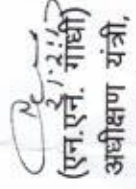 (एन.एन. गांधी)
अधीक्षण यंत्री,